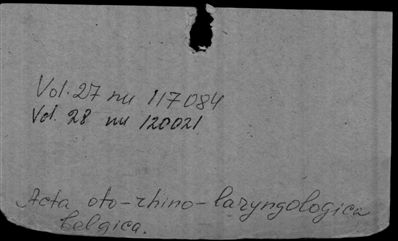 Vol. 27 nu 117084
Vol. 28 nu 120021
Acta oto-rhino-laryngologica
belgica.